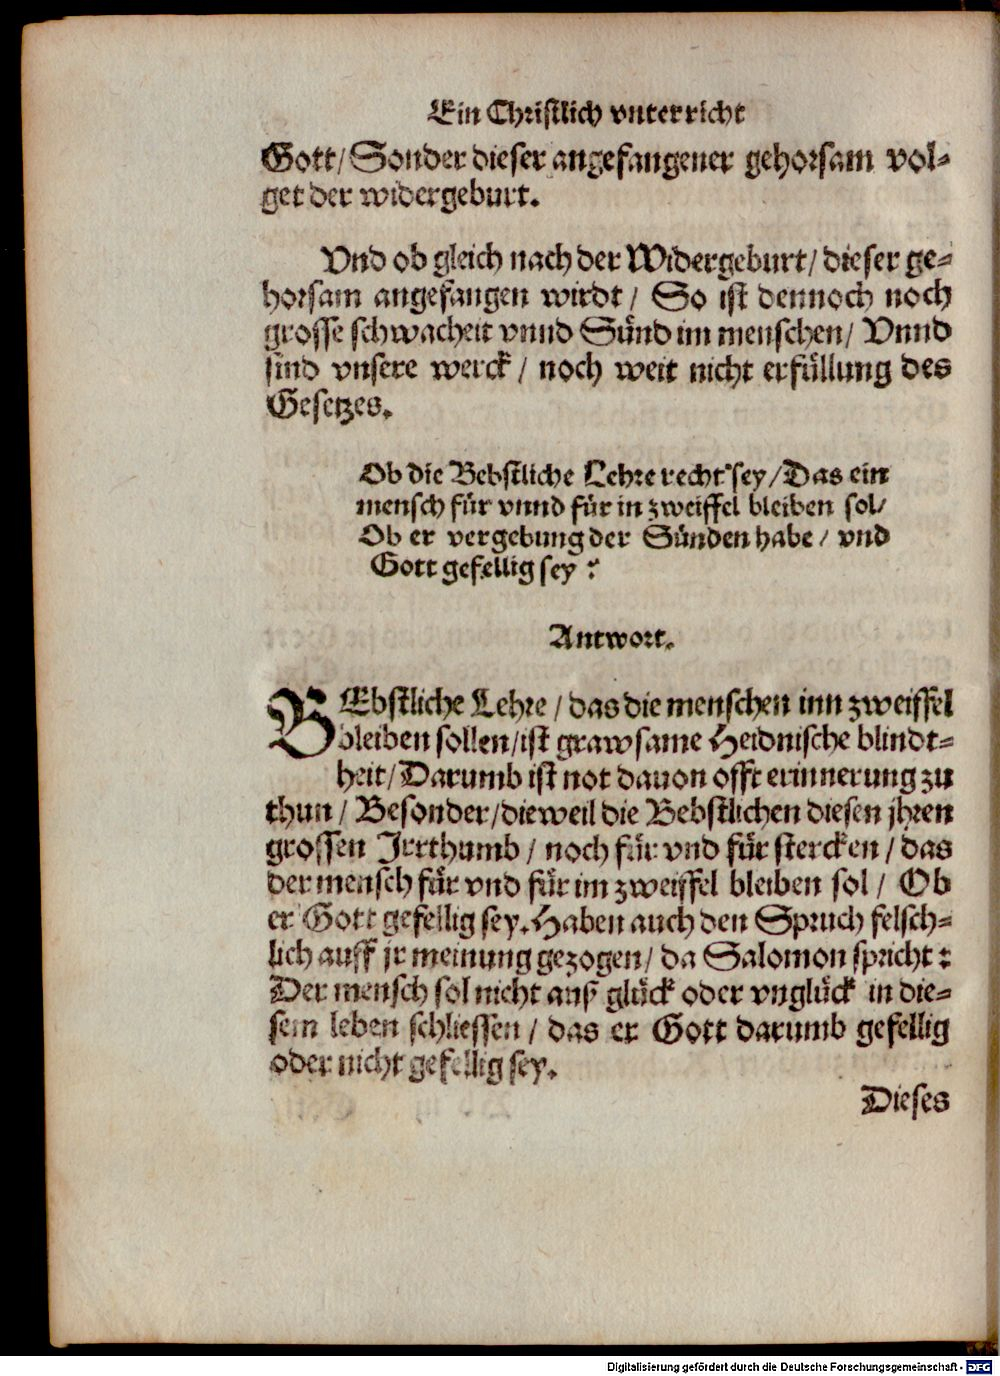 Ein Christlich vnterricht
Gott/ Sonder dieser angefangener gehorsam vol-
get der widergeburt.
Vnd ob gleich nach der Widergeburt/ dieser ge-
horsam angefangen wirdt / So ist dennoch noch
grosse schwacheit vnnd Sünd im menschen/ Vnnd
sind vnsere werck / noch weit nicht erfüllung des
Gesetzes.
Ob die Bebstliche Lehre recht sey/ Das ein
mensch für vnnd für in zweiffel bleiben sol/
Ob er vergebung der Sünden habe / vnd
Gott gefellig sey ?
Antwort.
BEbstliche Lehre / das die menschen inn zweiffel
bleiben sollen/ ist grawsame Heidnische blindt-
heit/ Darumb ist not dauon offt erinnerung zu
thun / Besonder/ dieweil die Bebstlichen diesen jhren
grossen Irrthumb / noch für vnd für stercken / das
der mensch für vnd für im zweiffel bleiben sol / Ob
er Gott gefellig sey. Haben auch den Spruch felsch-
lich auff jr meinung gezogen/ da Salomon spricht :
Der mensch sol nicht auß glück oder vnglück in die-
sem leben schliessen / das er Gott darumb gefellig
oder nicht gefellig sey.
Dieses
Digitalisierung gefördert durch die Deutsche Forschungsgemeinschaft - DFG